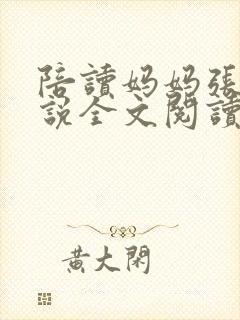 陪讀妈妈張
說全文閱讀
黃大閑